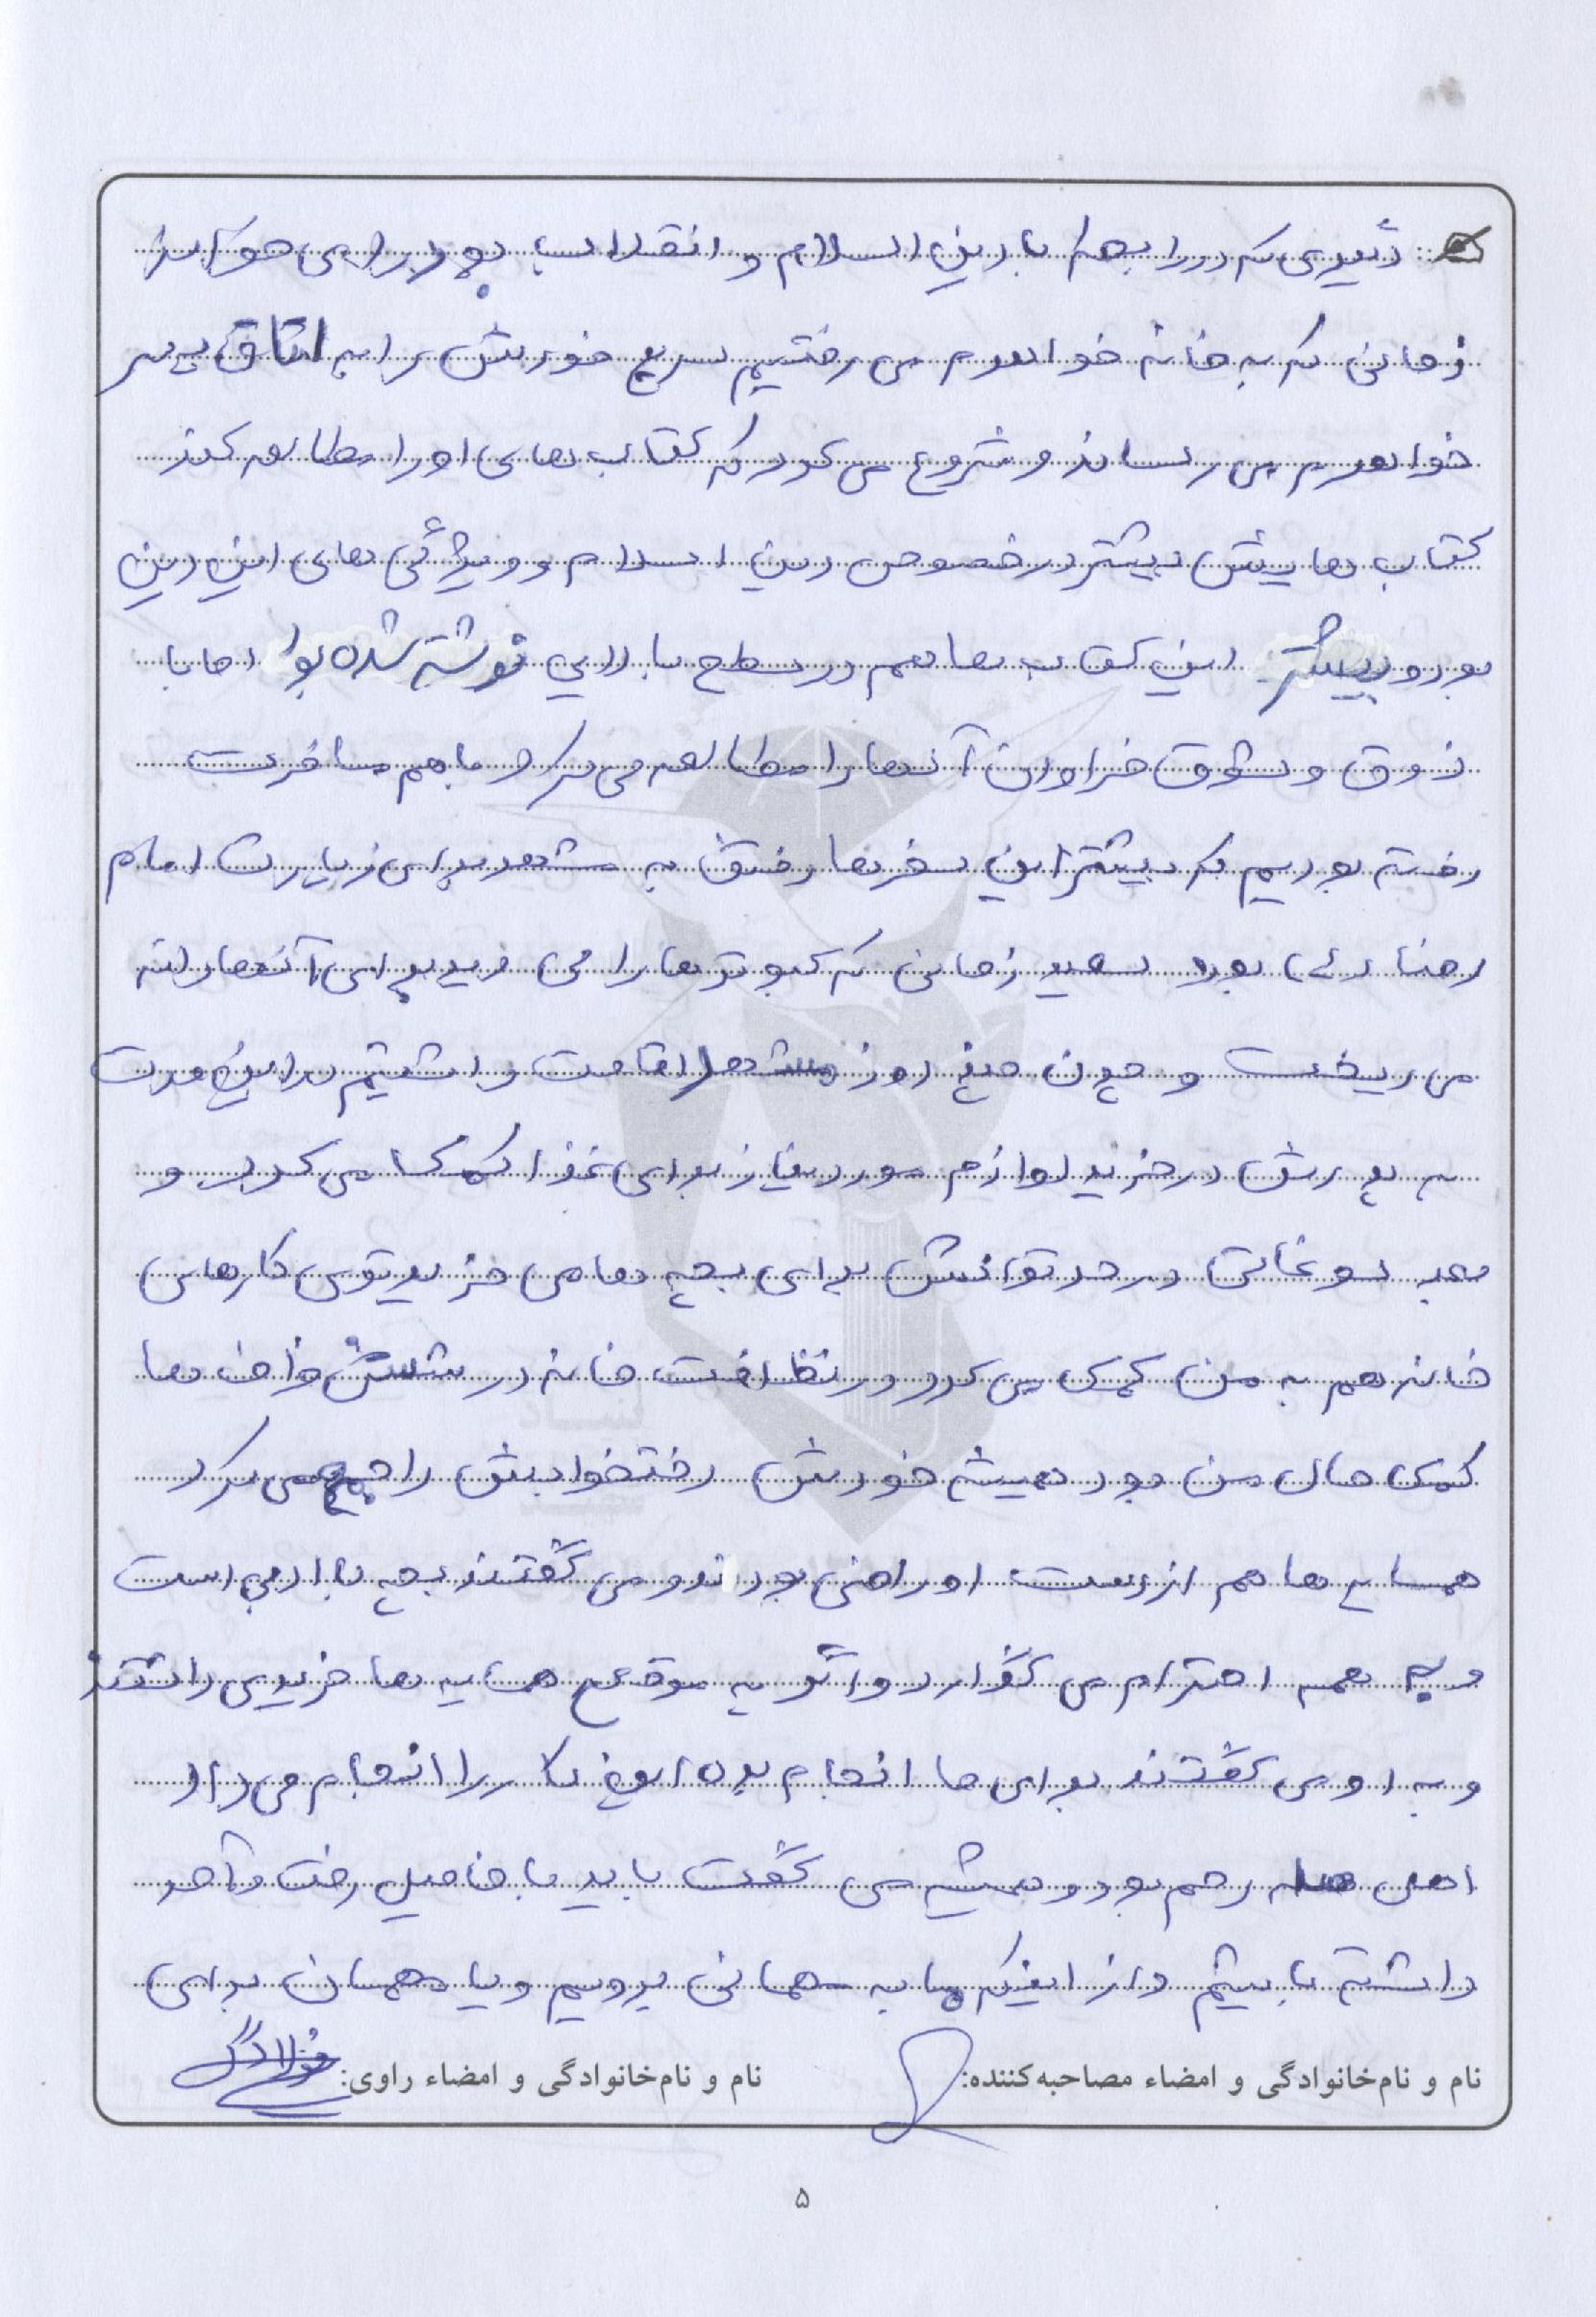 دیگری که در رابطه با دین اسلام و انقلاب بود را می خواند
زمانی که به خانه خواهرم می رفتیم سریع خودش را به اتاق پسر
خواهرم می رساند و شروع می کرد که کتاب های او را مطالعه کند
کتاب هایش بیشتر در خصوص دین اسلام و ویژگی های این دین
بود و بیشتر این کتاب ها هم در سطح بالایی نوشته شده بود اما با
ذوق و شوق فراوان آنها را مطالعه می کرد ما هم مسافرت
رفته بودیم که بیشتر این سفرها رفتن به مشهد برای زیارت امام
رضا (ع) بود سعید زمانی که کبوترها را می دید برای آنها دانه
می ریخت و چون پنج روز مشهد اقامت داشتیم در این مدت
به پدرش در خرید لوازم مورد نیاز برای غذا کمک می کرد و
بعد سوغاتی در حد توانش برای بچه ها می خرید توی کارهای
خانه هم به من کمک می کرد در نظافت خانه در شستن ظرف ها
کمک حال من بود همیشه خودش رختخوابش را جمع می کرد
همسایه ها هم از دست او راضی بودند و می گفتند بچه با ادبی است
و به همه احترام می گذارد و اگر یه موقع همسایه ها خریدی داشتند
و به او می گفتند برای ما انجام بده این کار را انجام می داد
اهل صله رحم بود و همیشه می گفت باید با فامیل رفت و آمد
داشته باشیم و از اینکه ما به مهمانی برویم و یا مهمان برای
نام و نام‌خانوادگی و امضاء مصاحبه‌کننده: نام و نام‌خانوادگی و امضاء راوی:
۵